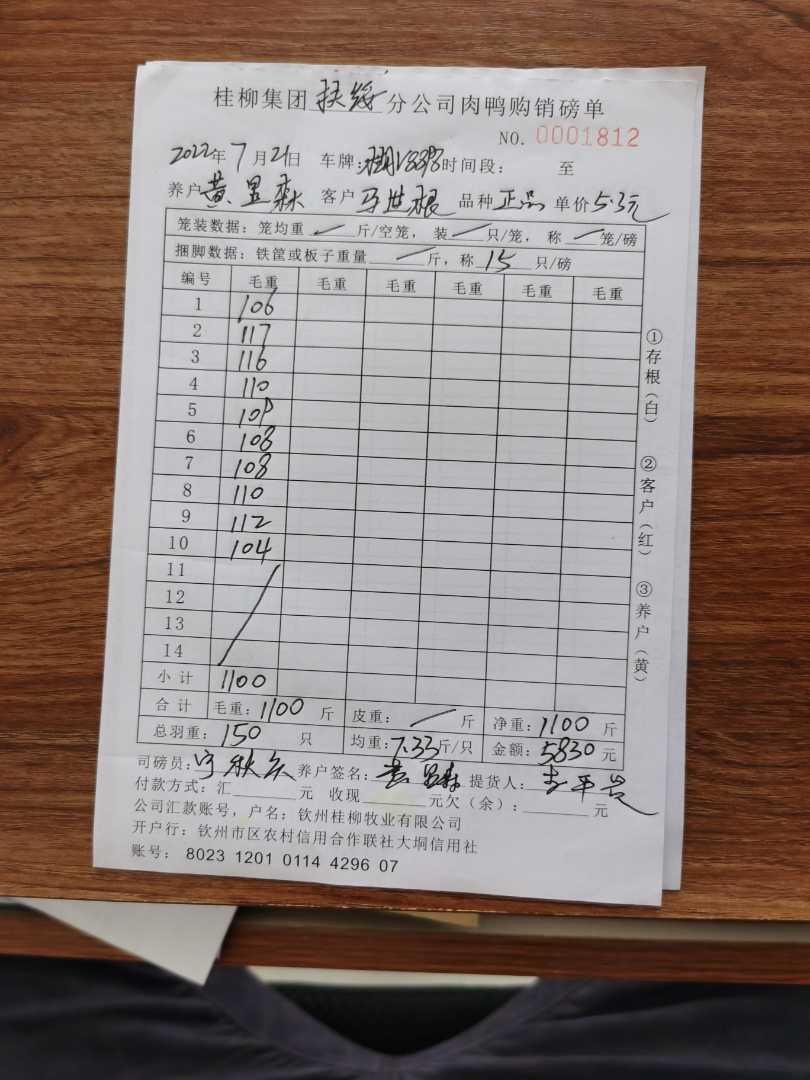 桂柳集团扶绥分公司肉鸭购销磅单
NO. 0001812
2022年7月21日 车牌: 时间段: 至
养户黄昱森 客户马世根 品种正品 单价5.3元
笼装数据: 笼均重／斤/空笼, 装／只/笼, 称／笼/磅
捆脚数据: 铁筐或板子重量／斤, 称15只/磅
编号 毛重 毛重 毛重 毛重 毛重 毛重
1 106
2 117
3 116
4 110
5 109
6 108
7 108
8 110
9 112
10 104
11
12
13
14
小计 1100
合计 毛重: 1100 斤 皮重: ／ 斤 净重: 1100 斤
总羽重: 150 只 均重: 7.33斤/只 金额: 5830元
司磅员: 养户签名: 黄昱森 提货人:
付款方式: 汇 元 收现 元欠(余): 元
公司汇款账号, 户名: 钦州桂柳牧业有限公司
开户行: 钦州市区农村信用合作联社大垌信用社
账号: 8023 1201 0114 4296 07
①存根(白)
②客户(红)
③养户(黄)